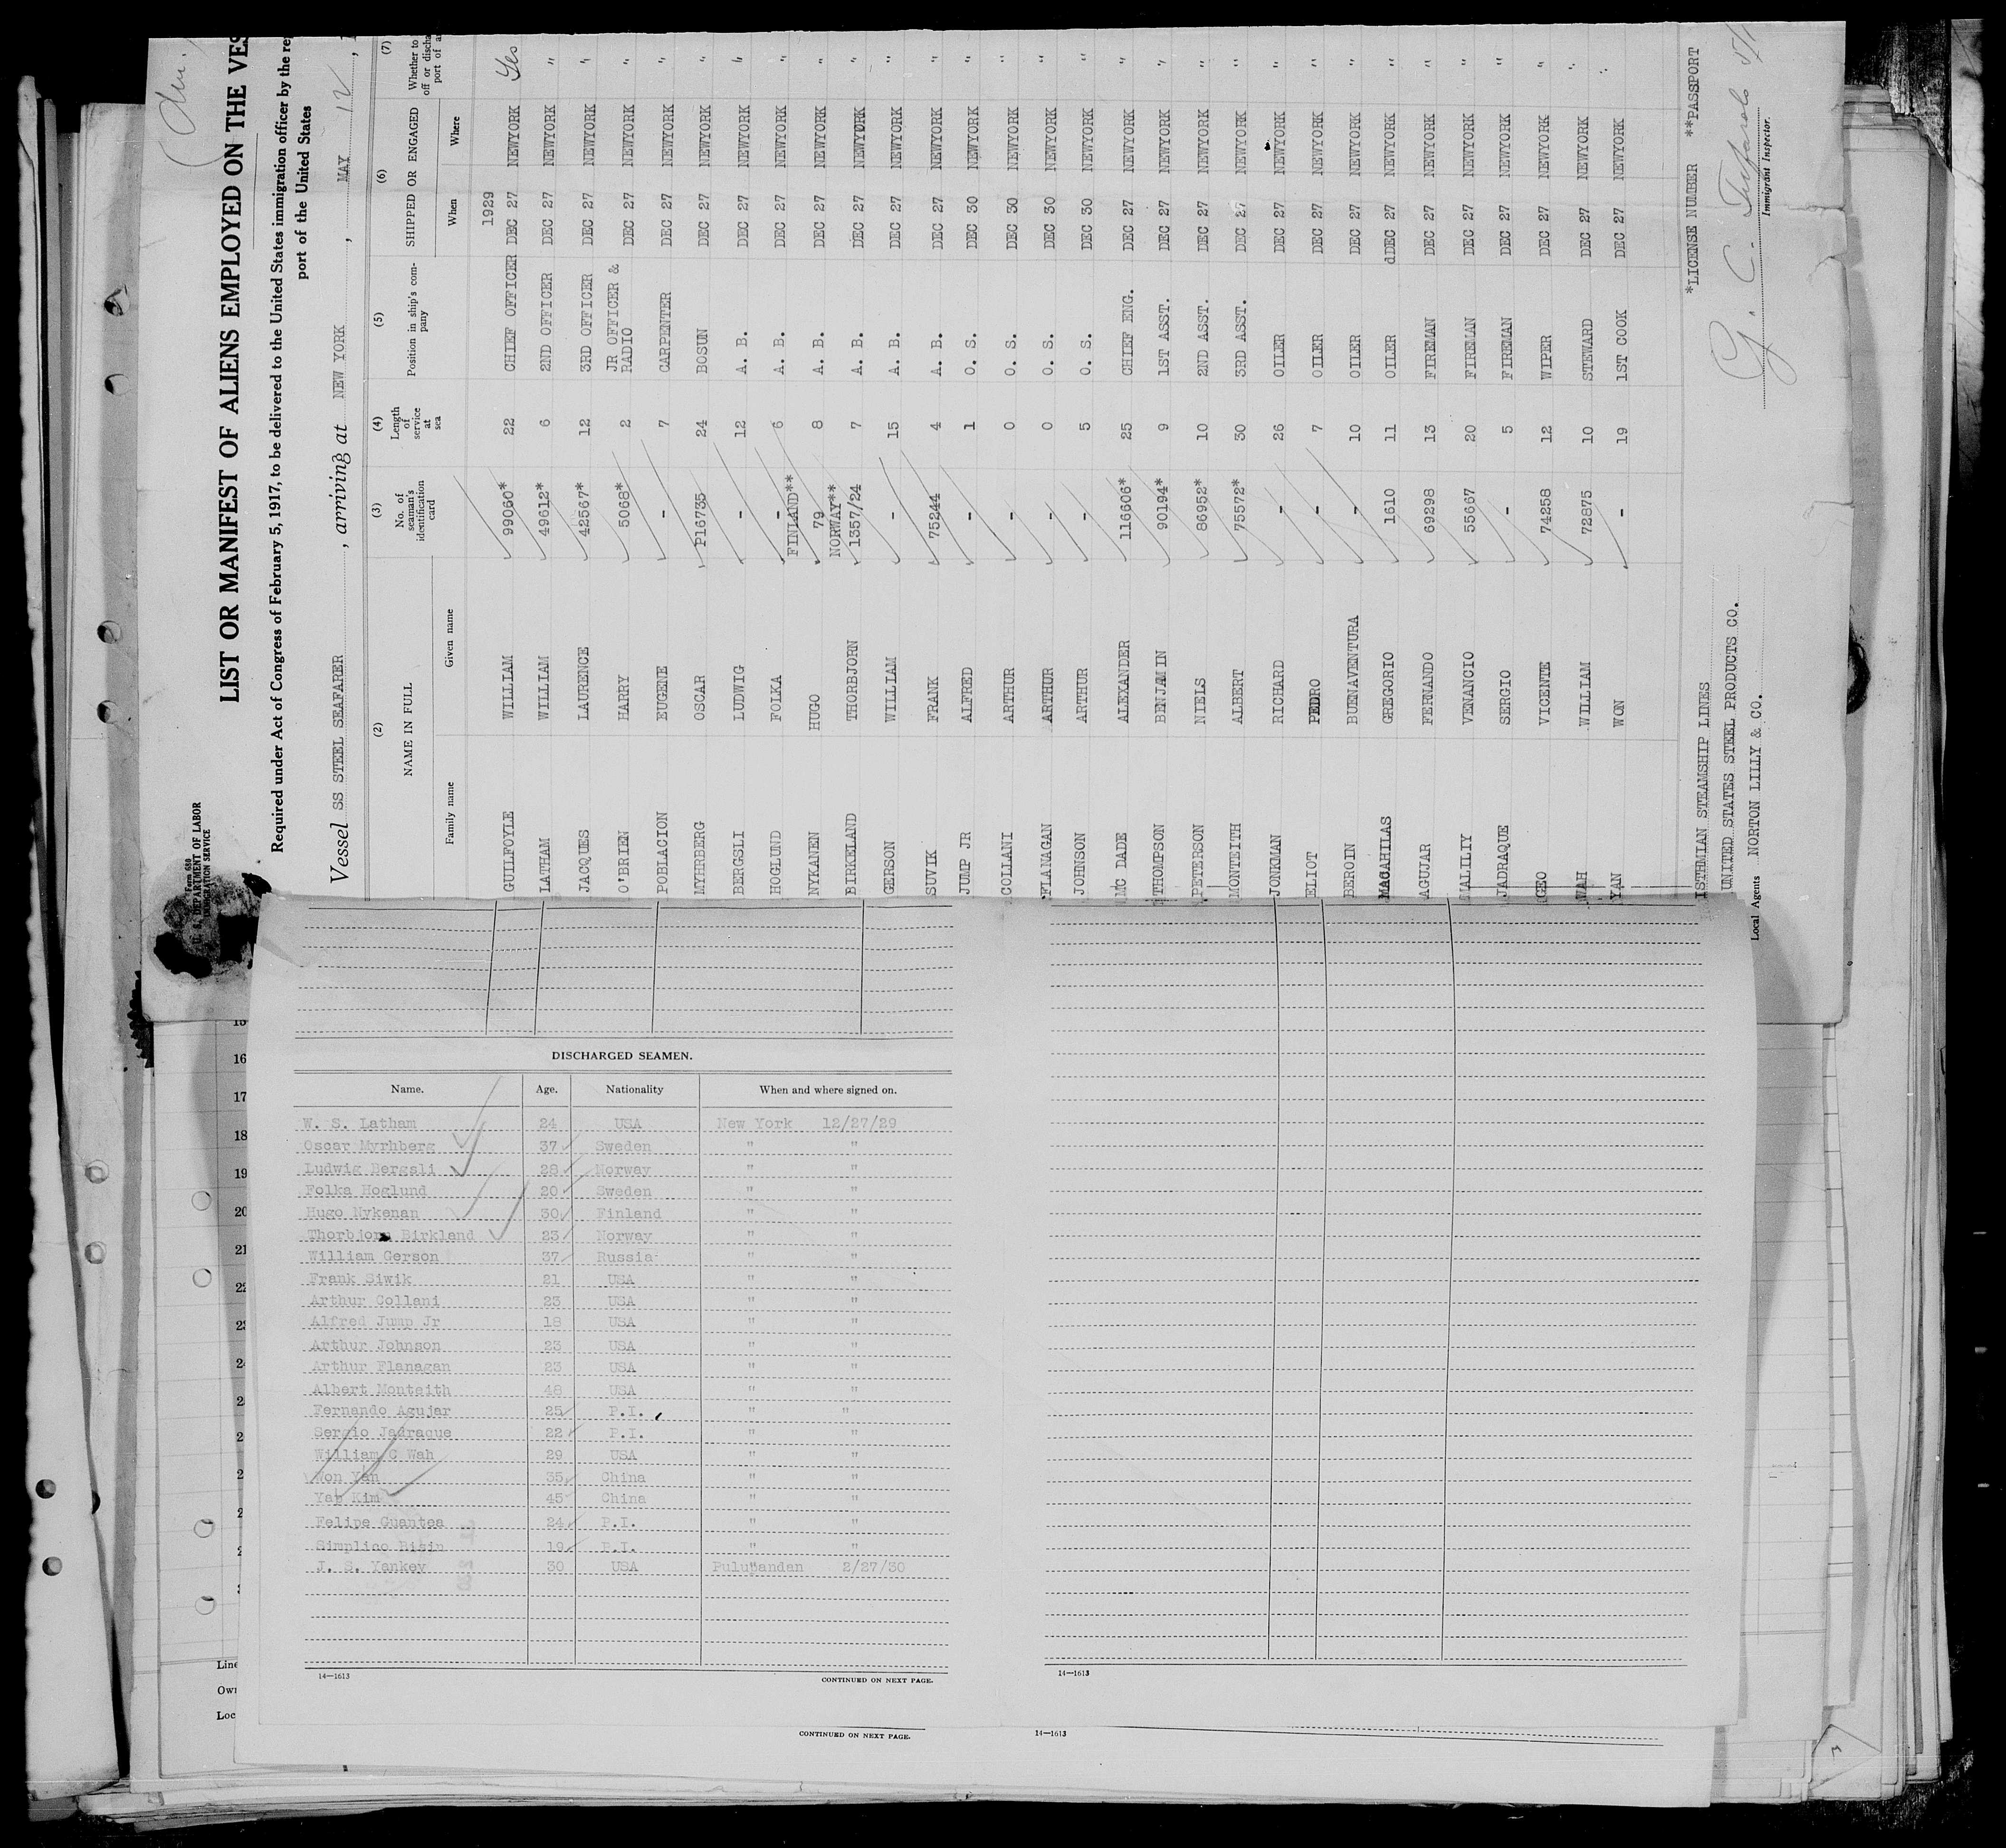 Form 680
U. S. DEPARTMENT OF LABOR
IMMIGRATION SERVICE
LIST OR MANIFEST OF ALIENS EMPLOYED ON THE VES
Required under Act of Congress of February 5, 1917, to be delivered to the United States immigration officer by the re
port of the United States
Vessel SS STEEL SEAFARER, arriving at NEW YORK, MAY 12, 1
(2) (3) (4) (5) (6) (7)
NAME IN FULL No. of seaman's identification card Length of service at sea Position in ship's company SHIPPED OR ENGAGED Whether to off or discha port of a
Family name Given name When Where
1929
GUILFOYLE WILLIAM 99060* 22 CHIEF OFFICER DEC 27 NEWYORK Yes
LATHAM WILLIAM 49612* 6 2ND OFFICER DEC 27 NEWYORK "
JACQUES LAURENCE 42567* 12 3RD OFFICER DEC 27 NEWYORK "
O'BRIEN HARRY 5068* 2 JR OFFICER & RADIO DEC 27 NEWYORK "
POBLACION EUGENE - 7 CARPENTER DEC 27 NEWYORK "
MYHRBERG OSCAR P16735 24 BOSUN DEC 27 NEWYORK "
BERGSLI LUDWIG - 12 A. B. DEC 27 NEWYORK "
HOGLUND FOLKA - 6 A. B. DEC 27 NEWYORK "
NYKANEN HUGO FINLAND** 79 8 A. B. DEC 27 NEWYORK "
BIRKELAND THORBJORN NORWAY** 1357/24 7 A. B. DEC 27 NEWYORK "
GERSON WILLIAM - 15 A. B. DEC 27 NEWYORK "
SUVIK FRANK 75244 4 A. B. DEC 27 NEWYORK "
JUMP JR ALFRED - 1 O. S. DEC 30 NEWYORK "
COLLANI ARTHUR - 0 O. S. DEC 30 NEWYORK "
FLANAGAN ARTHUR - 0 O. S. DEC 30 NEWYORK "
JOHNSON ARTHUR - 5 O. S. DEC 30 NEWYORK "
MC DADE ALEXANDER 116606* 25 CHIEF ENG. DEC 27 NEWYORK "
THOMPSON BENJAMIN 90194* 9 1ST ASST. DEC 27 NEWYORK "
PETERSON NIELS 86952* 10 2ND ASST. DEC 27 NEWYORK "
MONTEITH ALBERT 75572* 30 3RD ASST. DEC 27 NEWYORK "
JONKMAN RICHARD - 26 OILER DEC 27 NEWYORK "
ELIOT PEDRO - 7 OILER DEC 27 NEWYORK "
BEROIN BUENAVENTURA - 10 OILER DEC 27 NEWYORK "
MAGAHILAS GREGORIO 1610 11 OILER dDEC 27 NEWYORK "
AGUJAR FERNANDO 69298 13 FIREMAN DEC 27 NEWYORK "
MALILIY VENANCIO 55667 20 FIREMAN DEC 27 NEWYORK "
JADRAQUE SERGIO - 5 FIREMAN DEC 27 NEWYORK "
GEO VICENTE 74258 12 WIPER DEC 27 NEWYORK "
WAH WILLIAM 72875 10 STEWARD DEC 27 NEWYORK "
YAN WON - 19 1ST COOK DEC 27 NEWYORK "
*LICENSE NUMBER **PASSPORT
ISTHMIAN STEAMSHIP LINES
UNITED STATES STEEL PRODUCTS CO.
Local Agents NORTON LILLY & CO.
Immigrant Inspector.
DISCHARGED SEAMEN.
Name. Age. Nationality When and where signed on.
W. S. Latham 24 USA New York 12/27/29
Oscar Myrhberg 37 Sweden " "
Ludwig Bergsli 28 Norway " "
Folka Hoglund 20 Sweden " "
Hugo Nykenan 30 Finland " "
Thorbjorn Birkland 23 Norway " "
William Gerson 37 Russia " "
Frank Siwik 21 USA " "
Arthur Collani 23 USA " "
Alfred Jump Jr 18 USA " "
Arthur Johnson 23 USA " "
Arthur Flanagan 23 USA " "
Albert Monteith 48 USA " "
Fernando Agujar 25 P.I. " "
Sergio Jadraque 22 P.I. " "
William C Wah 29 USA " "
Won Yan 35 China " "
Yap Kim 45 China " "
Felipe Guantea 24 P.I. " "
Simplico Bisin 19 P.I. " "
J. S. Yankey 30 USA Pulupandan 2/27/30
14—1613 CONTINUED ON NEXT PAGE. 14—1613
CONTINUED ON NEXT PAGE. 14—1613
15
16
17
18
19
20
21
22
Line
Own
Loc